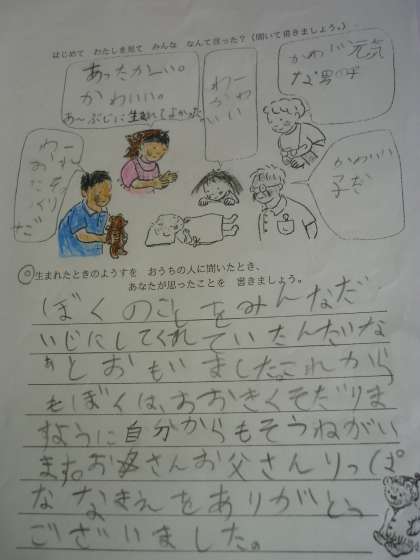 はじめて わたしを見て みんな なんて言った?(聞いて書きましょう。)
あったかーい。
かわいい。
あ〜ぶじに生まれてよかった
わーい
かわいい
かわいい元気
な男の子
かわいい
子だ
わーれ
おにそっくり
だ
◎生まれたときのようすを おうちの人に聞いたとき、
あなたが思ったことを 書きましょう。
ぼくのことをみんなだ
いじにしてくれていたんだな
あとおもいました。これから
もぼくは、おおきくそだりま
すように自分からもそうねがい
ます。お母さんお父さんりっぱ
ななまえをありがとう
ございました。